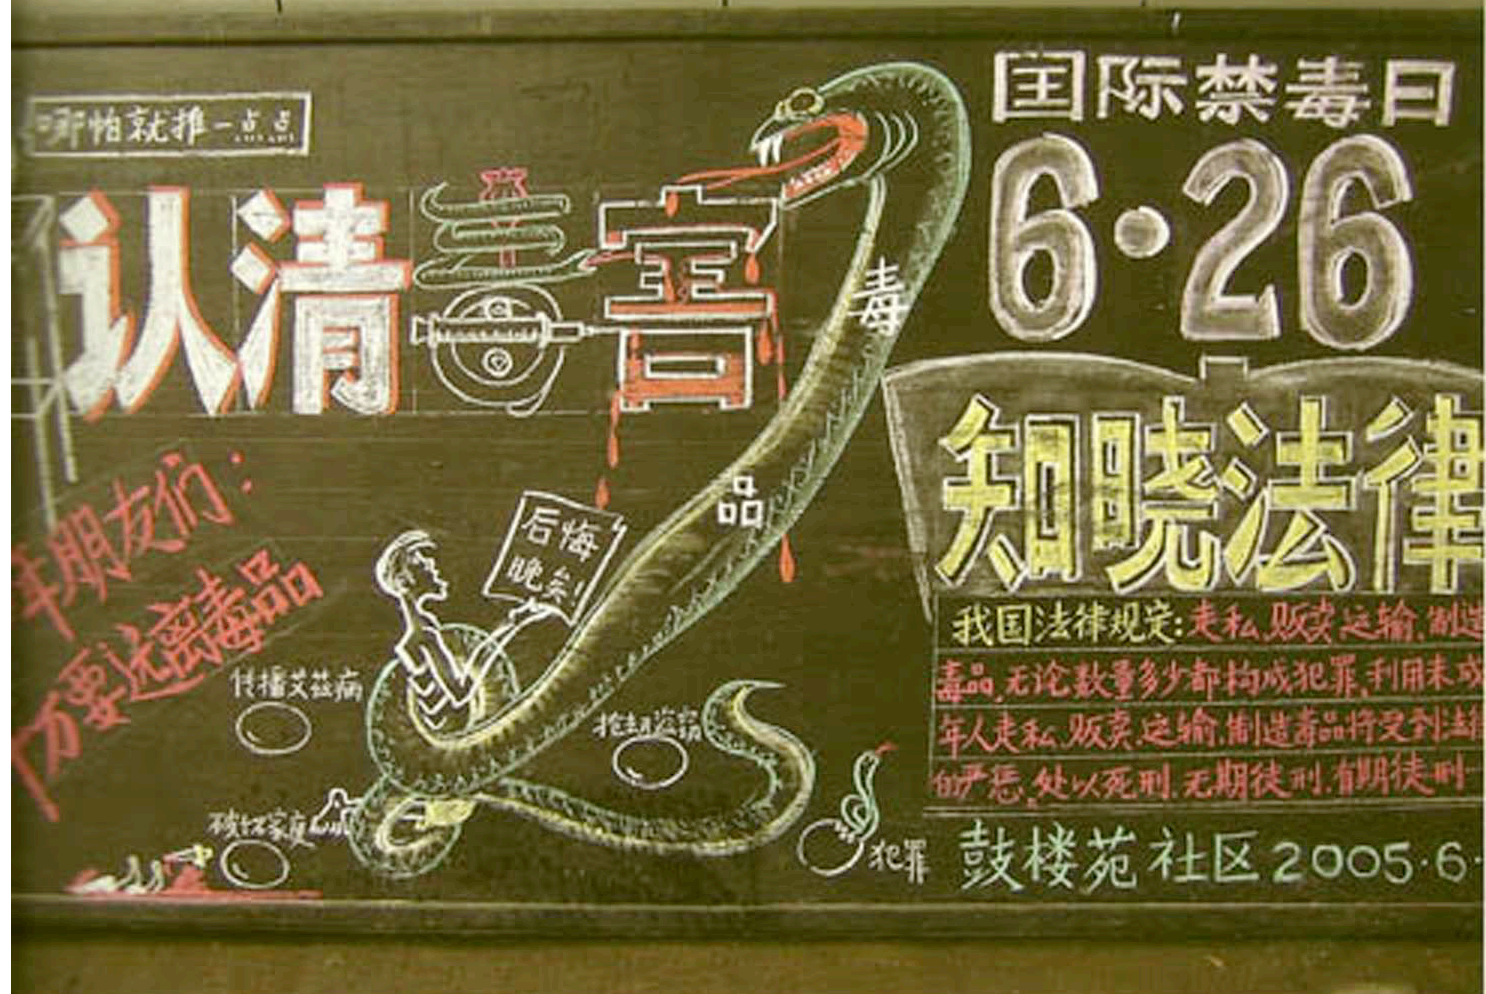 哪怕就推一点点
认清毒害
年朋友们：
万要远离毒品
后悔
晚矣!
毒
品
传播艾兹病
抢劫盗窃
破坏家庭
犯罪
国际禁毒日
6·26
知晓法律
我国法律规定:走私.贩卖.运输.制造
毒品,无论数量多少都构成犯罪,利用未成
年人走私.贩卖.运输.制造毒品将受到法律
的严惩,处以死刑.无期徒刑.有期徒刑
鼓楼苑社区2005·6·